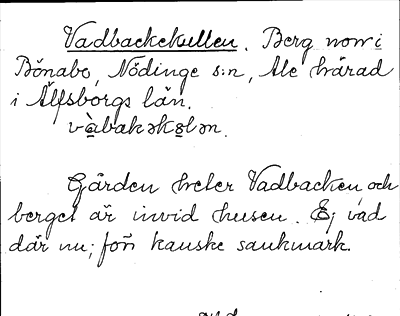 Vadbackekullen. Berg norr i
Bönabo, Nödinge s:n, Ale härad
i Älfsborgs län.
và̱bakəkələn.
Gården heter Vadbacken, och
berget är invid husen. Ej vad
där nu; förr kanske sankmark.